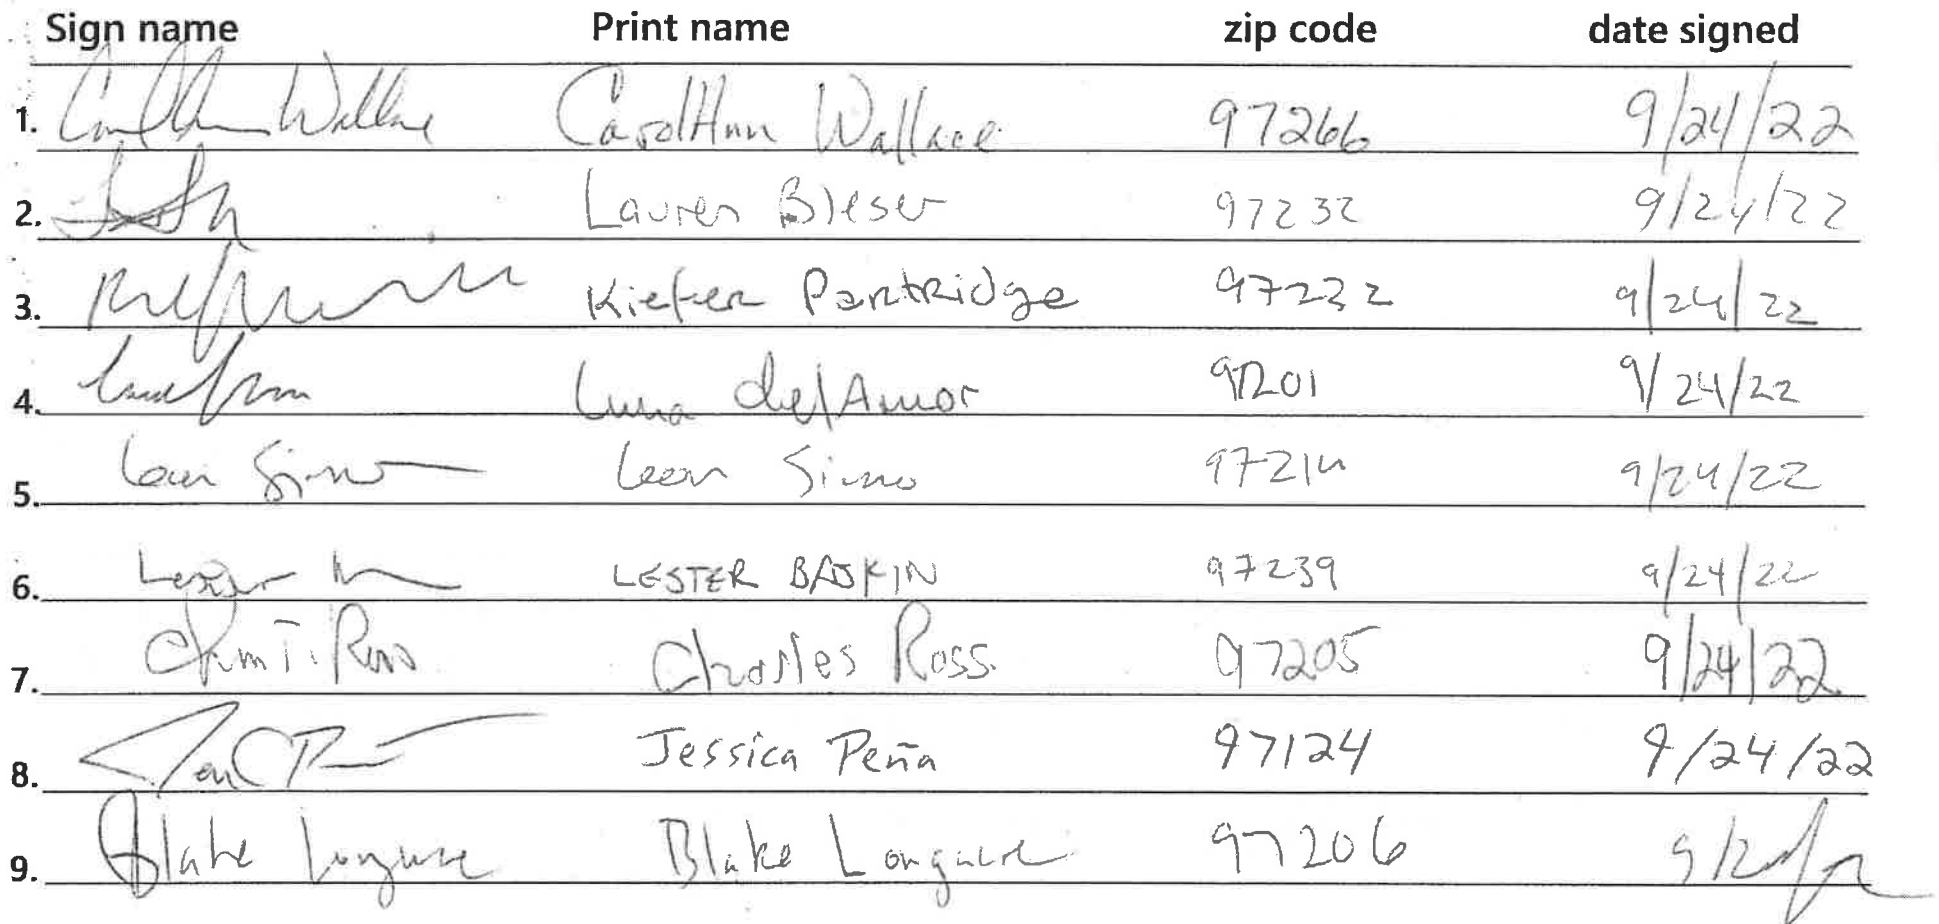 Sign name Print name zip code date signed
1. CarolAnn Wallace CarolAnn Wallace 97266 9/24/22
2. Lauren Bleser 97232 9/24/22
3. Kiefer Partridge 97232 9/24/22
4. Luna del Amor 97201 9/24/22
5. Leon Simo Leon Simo 97214 9/24/22
6. Lester LESTER BASKIN 97239 9/24/22
7. Ross Charles Ross 97205 9/24/22
8. Jessica Peña 97124 9/24/22
9. Blake Longacre Blake Longacre 97206